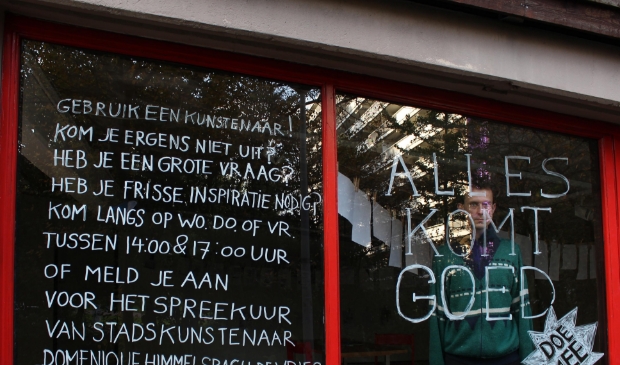 GEBRUIK EEN KUNSTENAAR!
KOM JE ERGENS NIET UIT?
HEB JE EEN GROTE VRAAG?
HEB JE FRISSE INSPIRATIE NODIG?
KOM LANGS OP WO. DO. OF VR.
TUSSEN 14:00 & 17:00 UUR
OF MELD JE AAN
VOOR HET SPREEKUUR
VAN STADSKUNSTENAAR
DOMENIQUE HIMMELSBACH DE VRIES
ALLES
KOMT
GOED
DOE
MEE